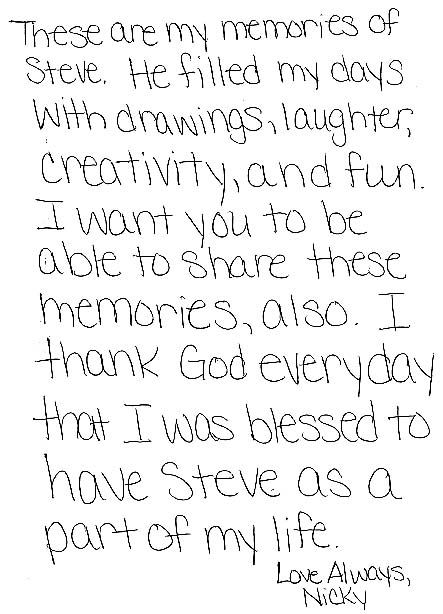 These are my memories of
Steve. He filled my days
with drawings, laughter,
creativity, and fun.
I want you to be
able to share these
memories, also. I
thank God everyday
that I was blessed to
have Steve as a
part of my life.
Love Always,
Nicky